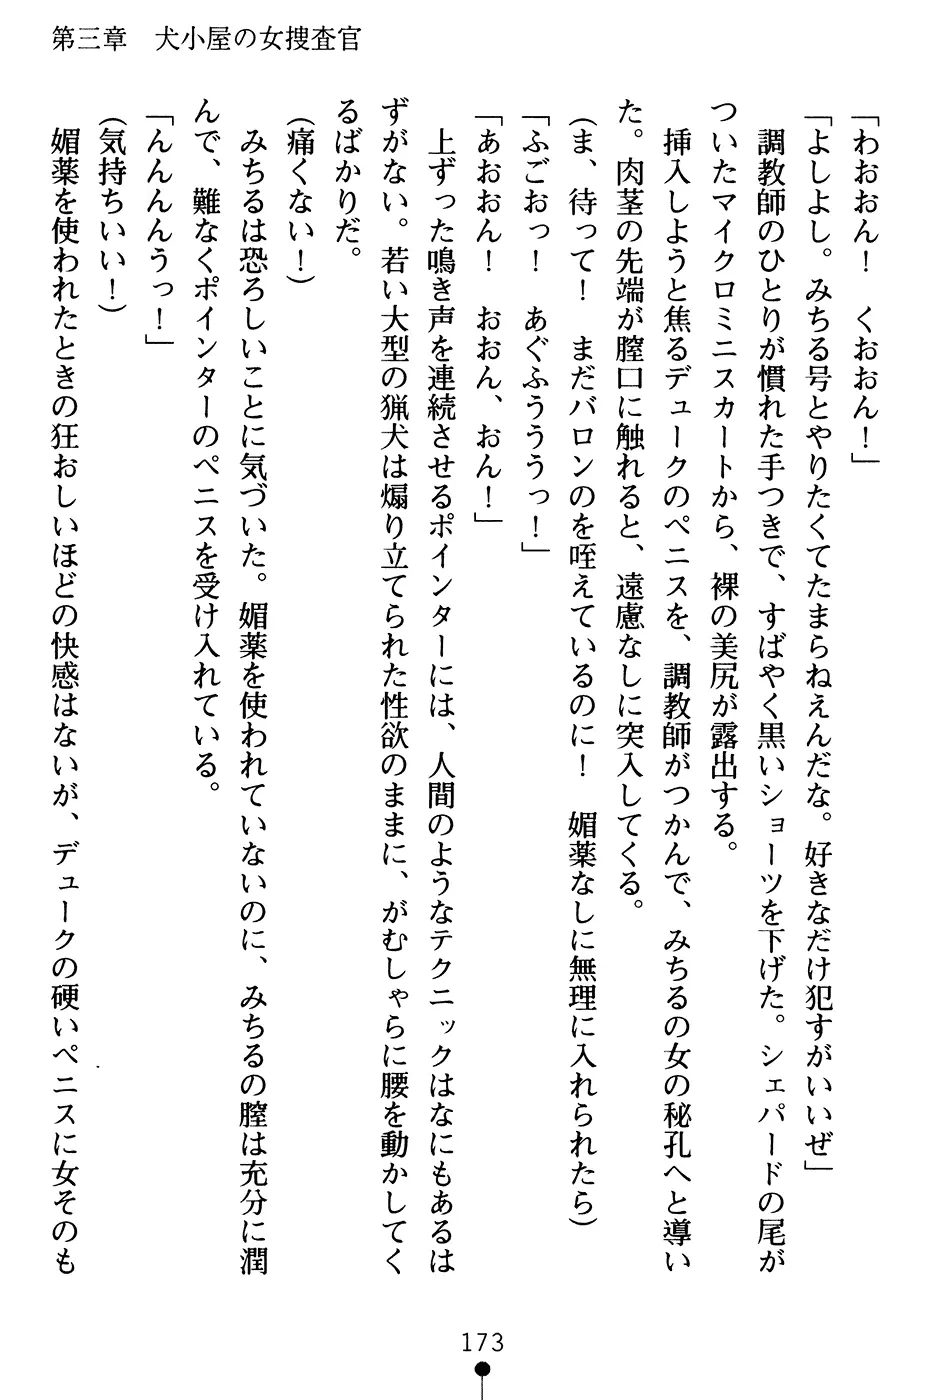 第三章　犬小屋の女捜査官
「わおおん！　くおおん！」
「よしよし。みちる号とやりたくてたまらねえんだな。好きなだけ犯すがいいぜ」
　調教師のひとりが慣れた手つきで、すばやく黒いショーツを下げた。シェパードの尾が
ついたマイクロミニスカートから、裸の美尻が露出する。
　挿入しようと焦るデュークのペニスを、調教師がつかんで、みちるの女の秘孔へと導い
た。肉茎の先端が膣口に触れると、遠慮なしに突入してくる。
（ま、待って！　まだバロンのを咥えているのに！　媚薬なしに無理に入れられたら）
「ふごおっ！　あぐふううぅっ！」
「あおおん！　おおん、おん！」
　上ずった鳴き声を連続させるポインターには、人間のようなテクニックはなにもあるは
ずがない。若い大型の猟犬は煽り立てられた性欲のままに、がむしゃらに腰を動かしてく
るばかりだ。
（痛くない！）
　みちるは恐ろしいことに気づいた。媚薬を使われていないのに、みちるの膣は充分に潤
んで、難なくポインターのペニスを受け入れている。
「んんんんうっ！」
（気持ちいい！）
　媚薬を使われたときの狂おしいほどの快感はないが、デュークの硬いペニスに女そのも
173